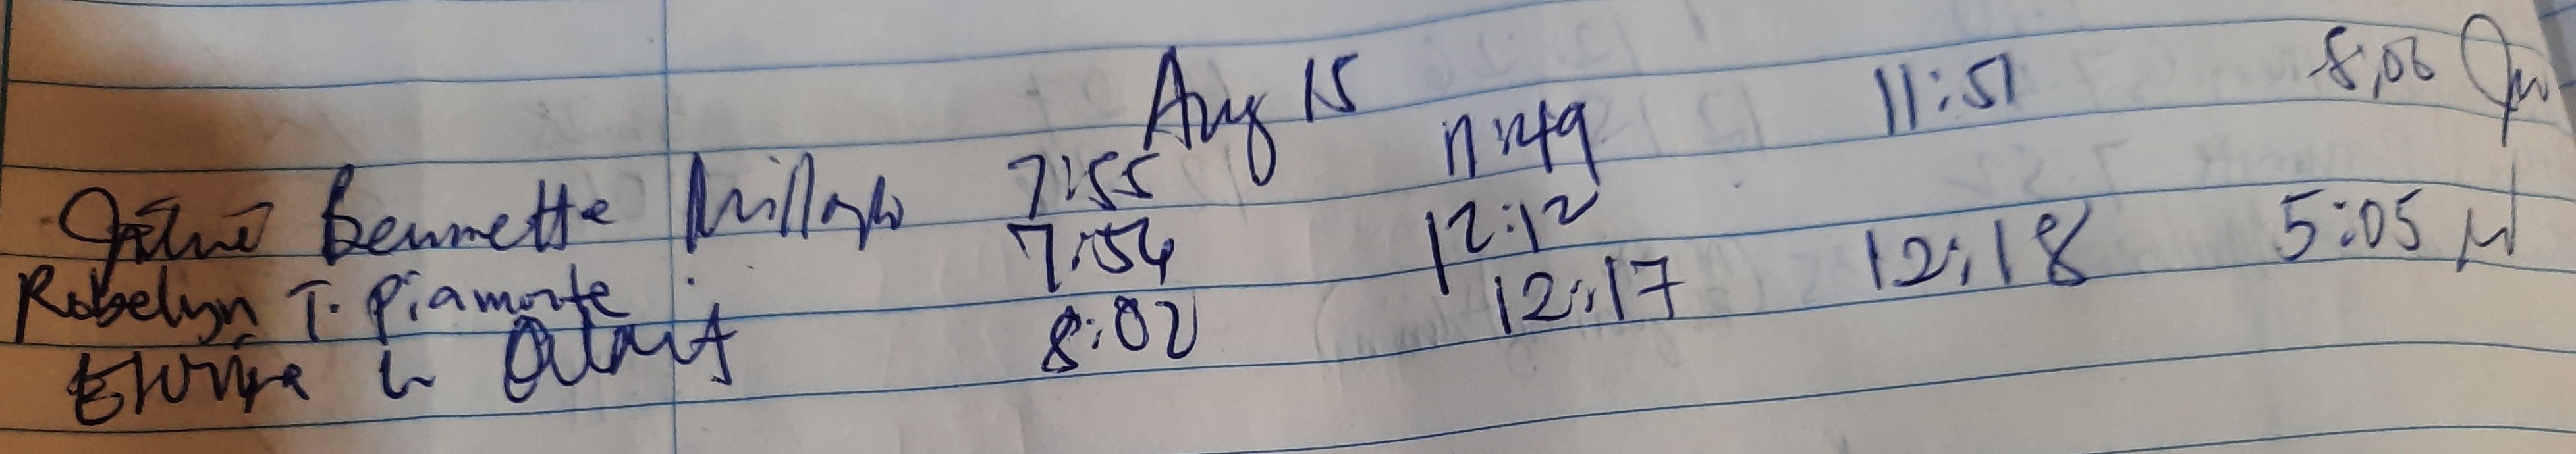 Aug 15
Bennette 7:55 11:49 11:51 8:06
Robelyn T. Piamonte 7:54 12:12
8:02 12:17 12:18 5:05